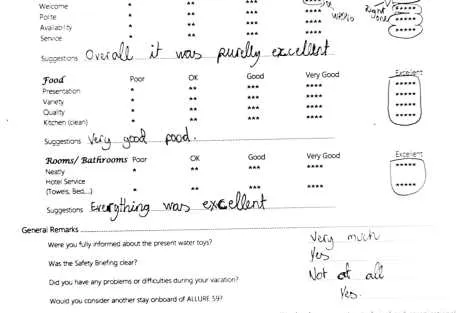 Welcome * **
Polite * **
Availability * **
Service * **
Suggestions Overall it was purely excellent
Food Poor OK Good Very Good Excellent
Presentation * ** *** **** *****
Variety * ** *** **** *****
Quality * ** *** **** *****
Kitchen (clean) * ** *** **** *****
Suggestions Very good food.
Rooms/ Bathrooms Poor OK Good Very Good Excellent
Neatly * ** *** **** *****
Hotel Service
(Towels, Bed...) * ** *** **** *****
Suggestions Everything was excellent
General Remarks
Were you fully informed about the present water toys? Very much
Was the Safety Briefing clear? Yes
Did you have any problems or difficulties during your vacation? Not at all
Would you consider another stay onboard of ALLURE 59? Yes.